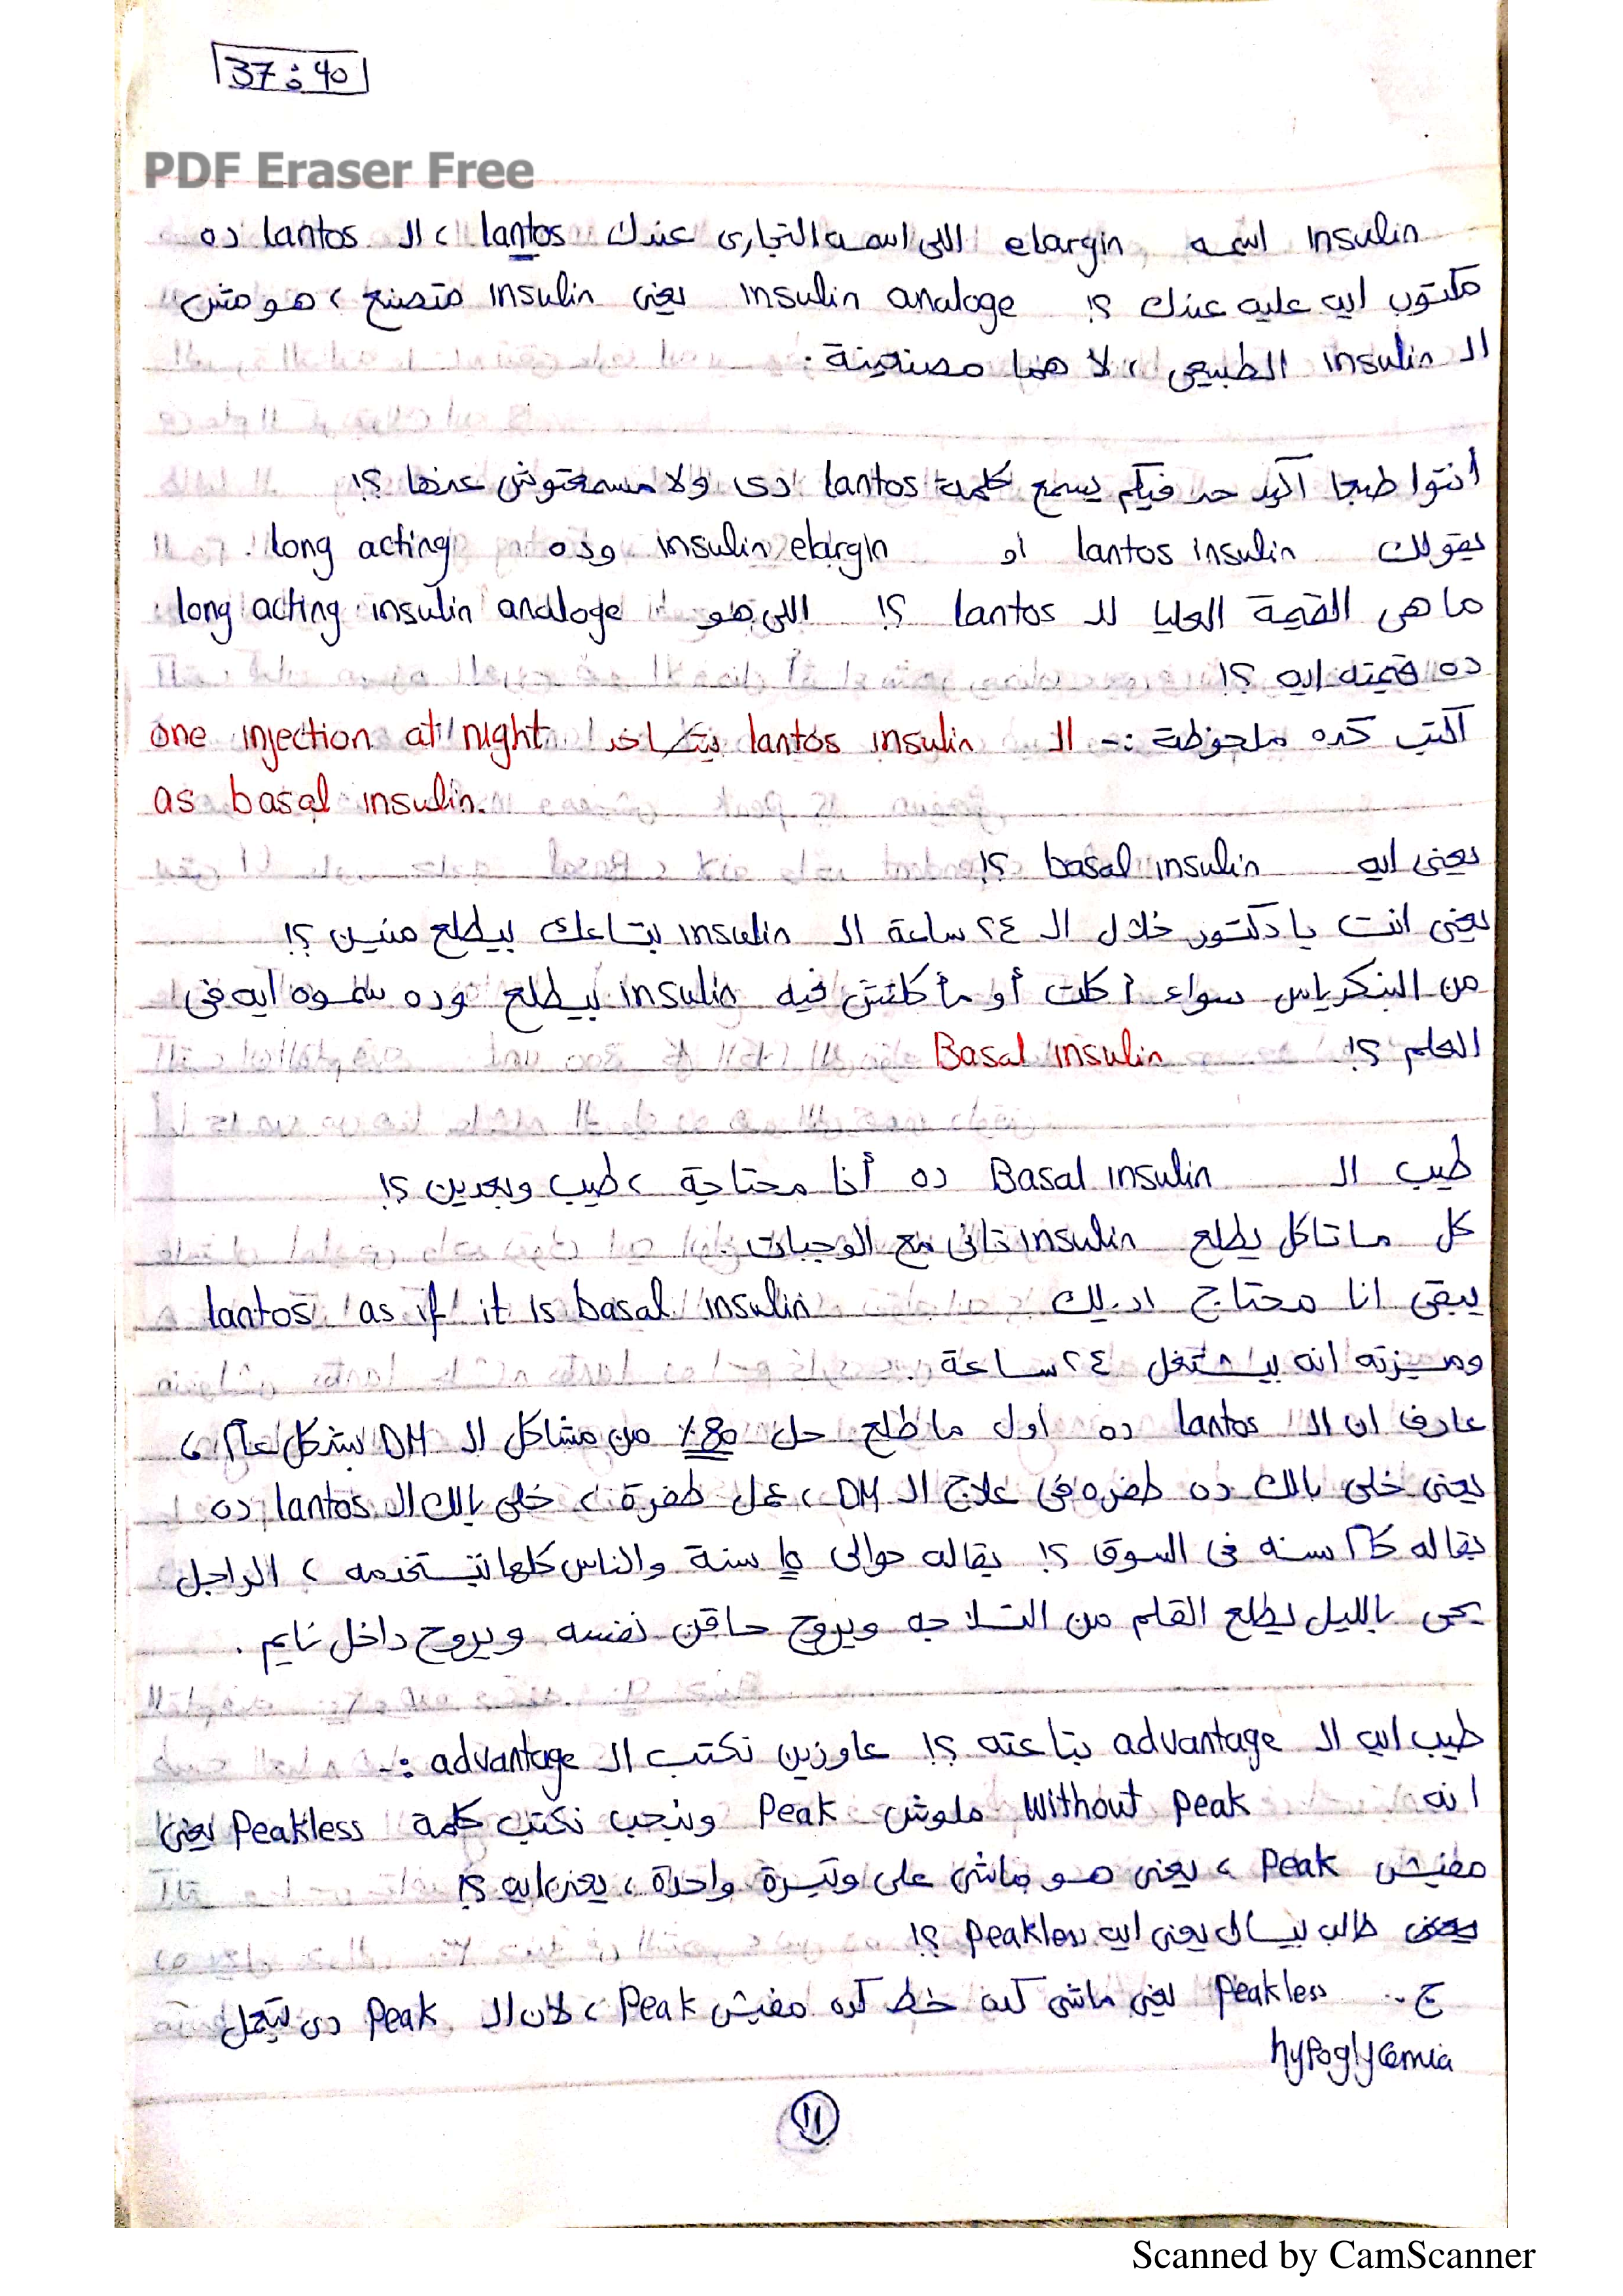 37:40
PDF Eraser Free
insulin اسمه elargin اللى اسمه التجارى عندك lantos ، ال lantos ده
مكتوب ايه عليه عندك ؟! insulin analoge يعنى insulin متصنع ، هو مش
ال insulin الطبيعى ، لا هنا مصنعينه .
أنتوا طبعا أكيد حد فيكم يسمع كلمة lantos دى ولا مسمعتوش عنها ؟!
يقولك lantos insulin او insulin elargin وده long acting .
ما هى القيمة العليا لل lantos ؟! اللى هو long acting insulin analoge
ده قيمته ايه ؟!
اكتب كده ملحوظة :- ال lantos insulin بتاخد one injection at night
as basal insulin.
يعنى ايه basal insulin ؟!
يعنى انت يا دكتور خلال ال ٢٤ ساعة ال insulin بتاعك بيطلع منين ؟!
من البنكرياس سواء أكلت أو مأكلتش فيه insulin بيطلع وده سموه ايه فى
العلم ؟! Basal insulin
طيب ال Basal insulin ده أنا محتاجة ، طيب وبعدين ؟!
كل ما تاكل يطلع insulin تانى مع الوجبات .
يبقى انا محتاج اديلك lantos as if it is basal insulin
وميزته انه بيشتغل ٢٤ ساعة .
عارف ان ال lantos ده أول ما طلع حل 80٪ من مشاكل ال DM بشكل عام ،
يعنى خلى بالك ده طفره فى علاج ال DM ، عمل طفرة ، خلى بالك ال lantos ده
بقاله كام سنه فى السوق ؟! بقاله حوالى ١٥ سنة والناس كلها بتستخدمه ، الراجل
يجى بالليل يطلع القلم من التلاجه ويروح حاقن نفسه ويروح داخل نايم .
طيب ايه ال advantage بتاعته ؟! عاوزين نكتب ال advantage :-
انه without peak ملوش Peak ونحب نكتب كلمة Peakless يعنى
مفيش Peak ، يعنى هو ماشى على وتيرة واحدة ، يعنى ايه ؟!
طالب بيسأل يعنى ايه peakless ؟!
ج- Peakless يعنى ماشى كده خط كده مفيش Peak ، لان ال Peak دى بتعمل
hypoglycemia
١١
Scanned by CamScanner